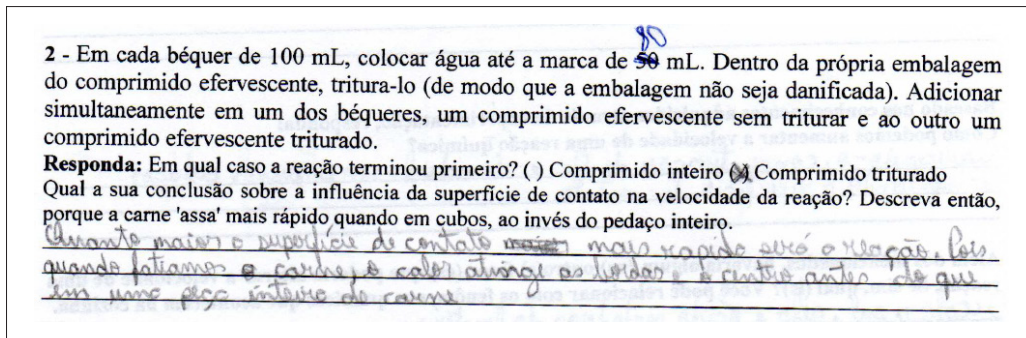 80
2 - Em cada béquer de 100 mL, colocar água até a marca de 50 mL. Dentro da própria embalagem
do comprimido efervescente, tritura-lo (de modo que a embalagem não seja danificada). Adicionar
simultaneamente em um dos béqueres, um comprimido efervescente sem triturar e ao outro um
comprimido efervescente triturado.
Responda: Em qual caso a reação terminou primeiro? ( ) Comprimido inteiro (X) Comprimido triturado
Qual a sua conclusão sobre a influência da superfície de contato na velocidade da reação? Descreva então,
porque a carne 'assa' mais rápido quando em cubos, ao invés do pedaço inteiro.
Quanto maior a superfície de contato mais rapido será a reação. Pois
quando fatiamos a carne, o calor atinge as bordas e o centro antes do que
em uma peça inteira de carne.